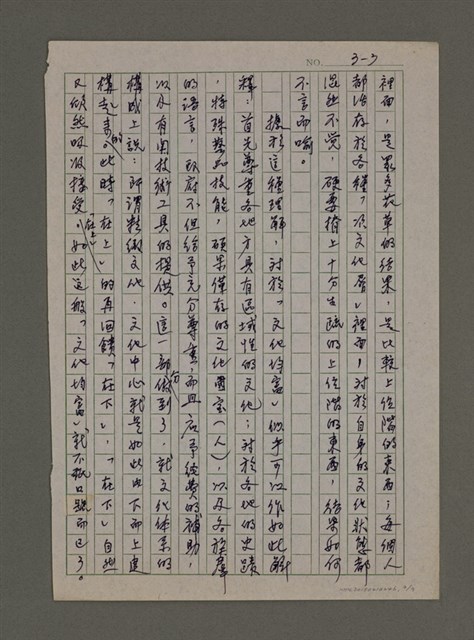 NO. 3-3
裡面,是眾多花草的結果,是比較上位階的東西;每個人
都活存於各種「次文化層」裡面,對於自身的文化狀態都
混然不覺,硬要揹上十分生疏的上位階的東西,結果如何
不言而喻。
據於這種理解,對於「文化均富」似乎可以作如此解
釋:首先尊重各地方具有區域性的文化;對於各地的史蹟
,特殊藝品技能,碩果僅存的文化國宝(人),以及各族群
的語言,政府不但給予充分尊重,而且应予経費的補助,
以及有関技術工具的提供。這一部份做到了,就文化体系的
構成上說:所謂精緻文化、文化中心就是如此由下而上建
構起來的。此時,「在上」的再回饋「在下」,「在下」自然
又欣然吸收接受「在上」。如此這般,「文化均富」就不祇口號而已了。